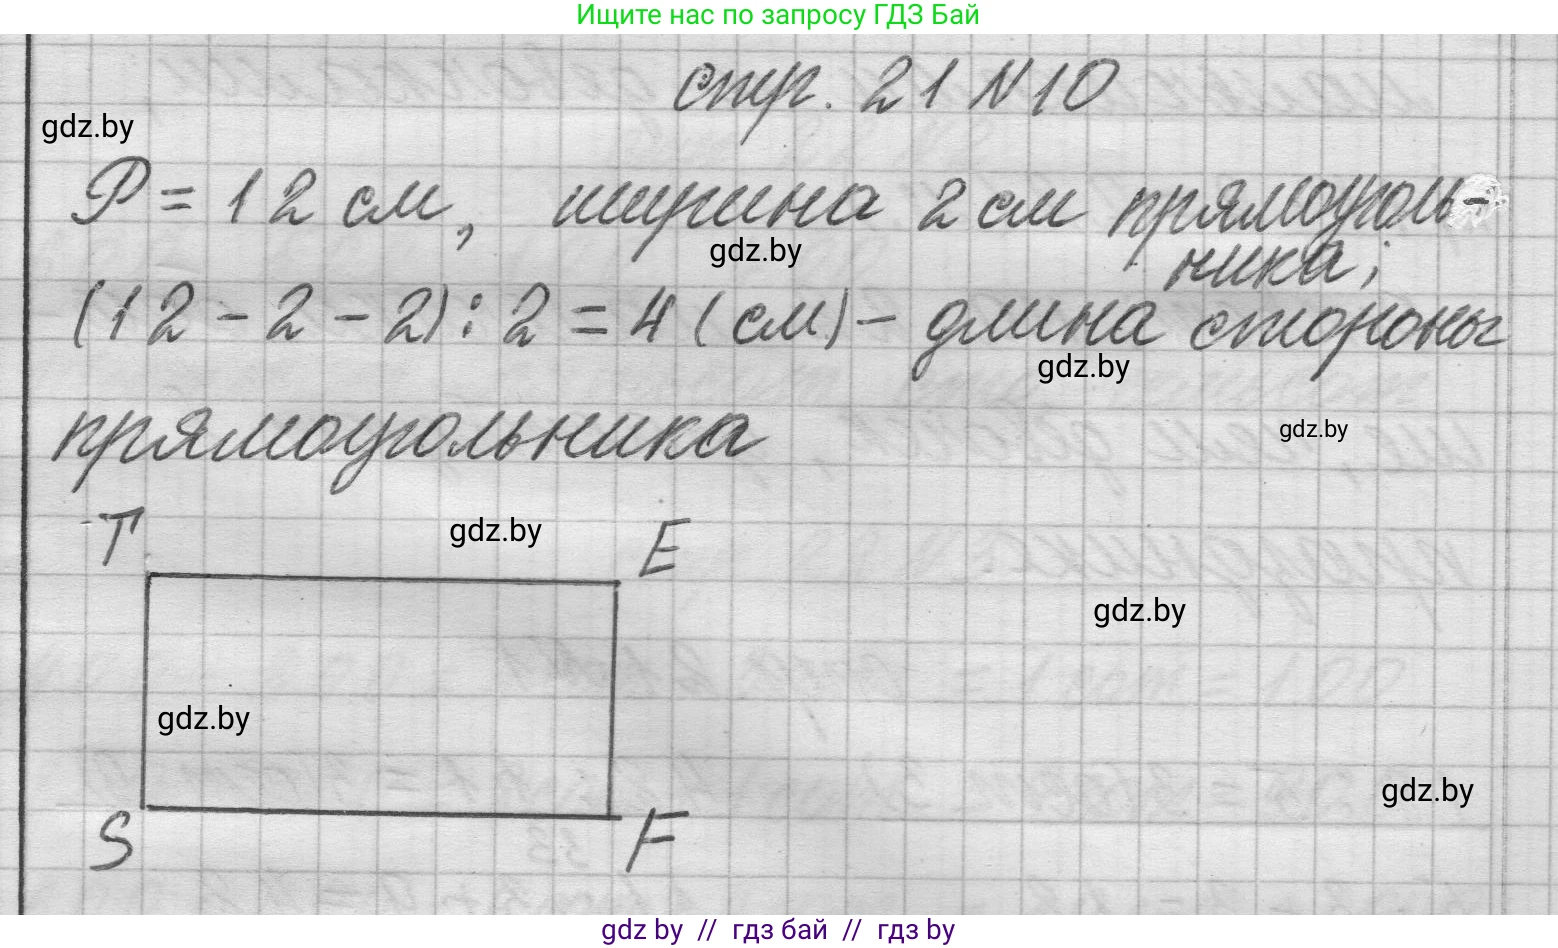 Ищите нас по запросу ГДЗ Бай
стр. 21 N10
gdz.by
P = 12 см, ширина 2 см прямоуголь-
ника;
gdz.by
(12 - 2 - 2) : 2 = 4 (см) - длина стороны
gdz.by
прямоугольника
gdz.by
T gdz.by E
gdz.by
gdz.by
gdz.by
S F
gdz.by // гдз бай // гдз by